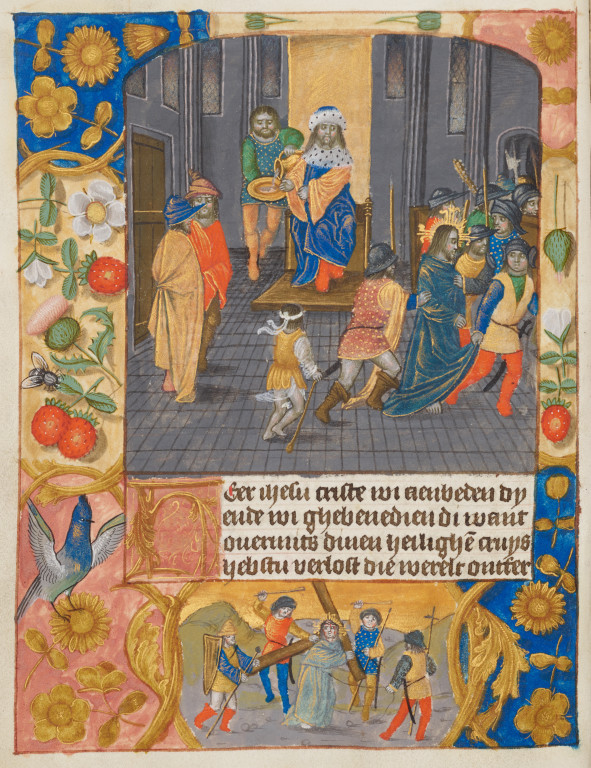 HEer ihesu criste wi aenbeden dy
ende wi ghebenedien di want
ouermits dinen heilighē cruys
hebstu verlost die werelt ontfer